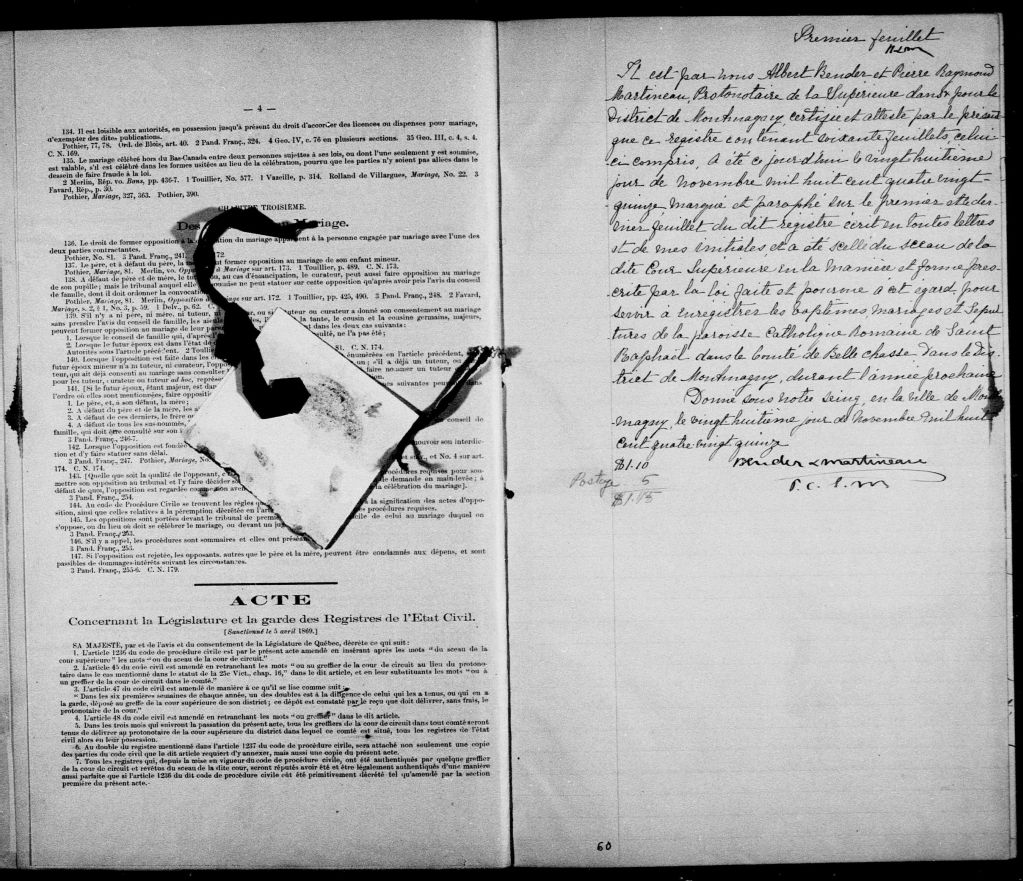 — 4 —
134. Il est loisible aux autorités, en possession jusqu'à présent du droit d'accorder des licences ou dispenses pour mariage,
n'exempter des dites publications.
Pothier, 77, 78. Ord. de Blois, art. 40. 2 Pand. Franç., 324. 4 Geo. IV, c. 76 en plusieurs sections. 35 Geo. III, c. 4, s. 4.
C. N. 169.
135. Le mariage célébré hors du Bas-Canada entre deux personnes sujettes à ses lois, ou dont l'une seulement y est soumise,
est valable, s'il est célébré dans les formes usitées au lieu de la célébration, pourvu que les parties n'y soient pas allées dans le
dessein de faire fraude à la loi.
2 Merlin, Rép. vo. Bans, pp. 436-7. 1 Touillier, No. 577. 1 Vazeille, p. 314. Rolland de Villargues, Mariage, No. 22. 3
Favard, Rép., p. 30.
Pothier, Mariage, 327, 363. Pothier, 390.
CHAPITRE TROISIÈME.
Des Mariage.
136. Le droit de former opposition à la du mariage appartient à la personne engagée par mariage avec l'une des
deux parties contractantes.
Pothier, No. 81. 3 Pand. Franç., 241. 172.
137. Le père, et à défaut du père, la former opposition au mariage de son enfant mineur.
Pothier, Mariage, 81. Merlin, vo. à Mariage sur art. 173. 1 Touillier, p. 489. C. N. 173.
138. A défaut de père et de mère, le tuteur, et le curateur, peut aussi faire opposition au mariage
de son pupille; mais le tribunal auquel elle ne peut statuer sur cette opposition qu'après avoir pris l'avis du conseil
de famille, dont il doit ordonner la convocation.
Pothier, Mariage, 81. Merlin, Opposition à Mariage sur art. 172. 1 Touillier, pp. 425, 490. 3 Pand. Franç., 248. 2 Favard,
Mariage, s. 2, § 1, No. 3, p. 59. p. 62.
139. S'il n'y a ni père, ni mère, ni tuteur, ou si tuteur ou curateur a donné son consentement au mariage
sans prendre l'avis du conseil de famille, les la tante, le cousin et la cousine germains, majeurs,
peuvent former opposition au mariage de leur dans les deux cas suivants:
1. Lorsque le conseil de famille qui, d'après consulté, ne l'a pas été;
2. Lorsque le futur époux est dans l'état de
Autorités sous l'article précédent. 2 81. C. N. 174.
140. Lorsque l'opposition est faite dans les énumérées en l'article précédent,
futur époux mineur n'a ni tuteur, ni curateur, on; s'il a déjà un tuteur, ou
teur, qui ait déjà consenti au mariage sans consulter faire nommer un tuteur
pour les tuteur, curateur ou tuteur ad hoc,
141. [Si le futur époux, étant majeur, est suivantes peuvent, dans
l'ordre où elles sont mentionnées, faire
1. Le père, et, à son défaut, la mère;
2. A défaut du père et de la mère, les
3. A défaut de ces derniers, le frère
4. A défaut de tous les sus-nommés, conseil de
famille, qui doit être consulté sur son
3 Pand. Franç., 246-7.
142. Lorsque l'opposition est fondée pouvoir son interdic-
tion et d'y faire statuer sans délai.
3 Pand. Franç., 247. Pothier, Mariage, et No. 4 sur art.
174. C. N. 174.
143. [Quelle que soit la qualité de l'opposant, requises pour sou-
mettre son opposition au tribunal et l'y faire décider de demande en main-levée; à
défaut de quoi, l'opposition est regardée comme non la célébration du mariage].
3 Pand. Franç., 254.
144. Au code de Procédure Civile se trouvent les règles la signification des actes d'oppo-
sition, ainsi que celles relatives à la péremption décrétée en procédures requises.
145. Les oppositions sont portées devant le tribunal de celle de celui au mariage duquel on
s'oppose, ou du lieu où doit se célébrer le mariage, ou devant un
3 Pand. Franç., 253.
146. S'il y a appel, les procédures sont sommaires et elles ont
3 Pand. Franç., 253.
147. Si l'opposition est rejetée, les opposants, autres que le père et la mère, peuvent être condamnés aux dépens, et sont
passibles de dommages-intérêts suivant les circonstances.
3 Pand. Franç., 255-6. C. N. 179.
ACTE
Concernant la Législature et la garde des Registres de l'Etat Civil.
[Sanctionné le 5 avril 1869.]
SA MAJESTÉ, par et de l'avis et du consentement de la Législature de Québec, décrète ce qui suit:
1. L'article 1236 du code de procédure civile est par le présent acte amendé en insérant après les mots "du sceau de la
cour supérieure" les mots "ou du sceau de la cour de circuit."
2. L'article 45 du code civil est amendé en retranchant les mots "ou au greffier de la cour de circuit au lieu du protono-
taire dans le cas mentionné dans le statut de la 25e Vict., chap. 16," dans le dit article, et en leur substituant les mots "ou à
un greffier de la cour de circuit dans le comté."
3. L'article 47 du code civil est amendé de manière à ce qu'il se lise comme suit:
"Dans les six premières semaines de chaque année, un des doubles est à la diligence de celui qui les a tenus, ou qui en a
la garde, déposé au greffe de la cour supérieure de son district; ce dépôt est constaté par le reçu que doit délivrer, sans frais, le
protonotaire de la cour."
4. L'article 48 du code civil est amendé en retranchant les mots "ou greffier" dans le dit article.
5. Dans les trois mois qui suivront la passation du présent acte, tous les greffiers de la cour de circuit dans tout comté seront
tenus de délivrer au protonotaire de la cour supérieure du district dans lequel ce comté est situé, tous les registres de l'état
civil alors en leur possession.
6. Au double du registre mentionné dans l'article 1237 du code de procédure civile, sera attaché non seulement une copie
des parties du code civil que le dit article requiert d'y annexer, mais aussi une copie du présent acte.
7. Tous les registres qui, depuis la mise en vigueur du code de procédure civile, ont été authentiqués par quelque greffier
de la cour de circuit et revêtus du sceau de la dite cour, seront réputés avoir été et être légalement authentiqués d'une manière
aussi parfaite que si l'article 1236 du dit code de procédure civile eût été primitivement décrété tel qu'amendé par la section
première du présent acte.
Premier feuillet
Il est par nous Albert Bender et Pierre Raymond
Martineau, Protonotaire de la Supérieure dans & pour le
District de Montmagny certifié et attesté par le présent
que ce registre contenant soixante feuillets celui-
ci compris, a été ce jourd'hui le vingt huitième
jour de novembre mil huit cent quatre vingt-
quinze marqué et paraphé sur le premier et der-
nier feuillet du dit registre écrit en toutes lettres
et de mes initiales, et a été scellé du sceau de la
dite Cour Supérieure en la manière et forme pres-
crite par la loi faite et pourvue à cet égard, pour
servir à enregistrer les baptêmes mariages et sépul
tures de la paroisse Catholique Romaine de Saint
Raphaël dans le Comté de Bellechasse dans le Dis-
trict de Montmagny, durant l'année prochaine
Donné sous notre seing, en la ville de Mont
magny, le vingt huitième jour de novembre mil huit
cent quatre vingt quinze
$1.10 Bender & Martineau
Postage 5 P. C. S. M
$1.15
60